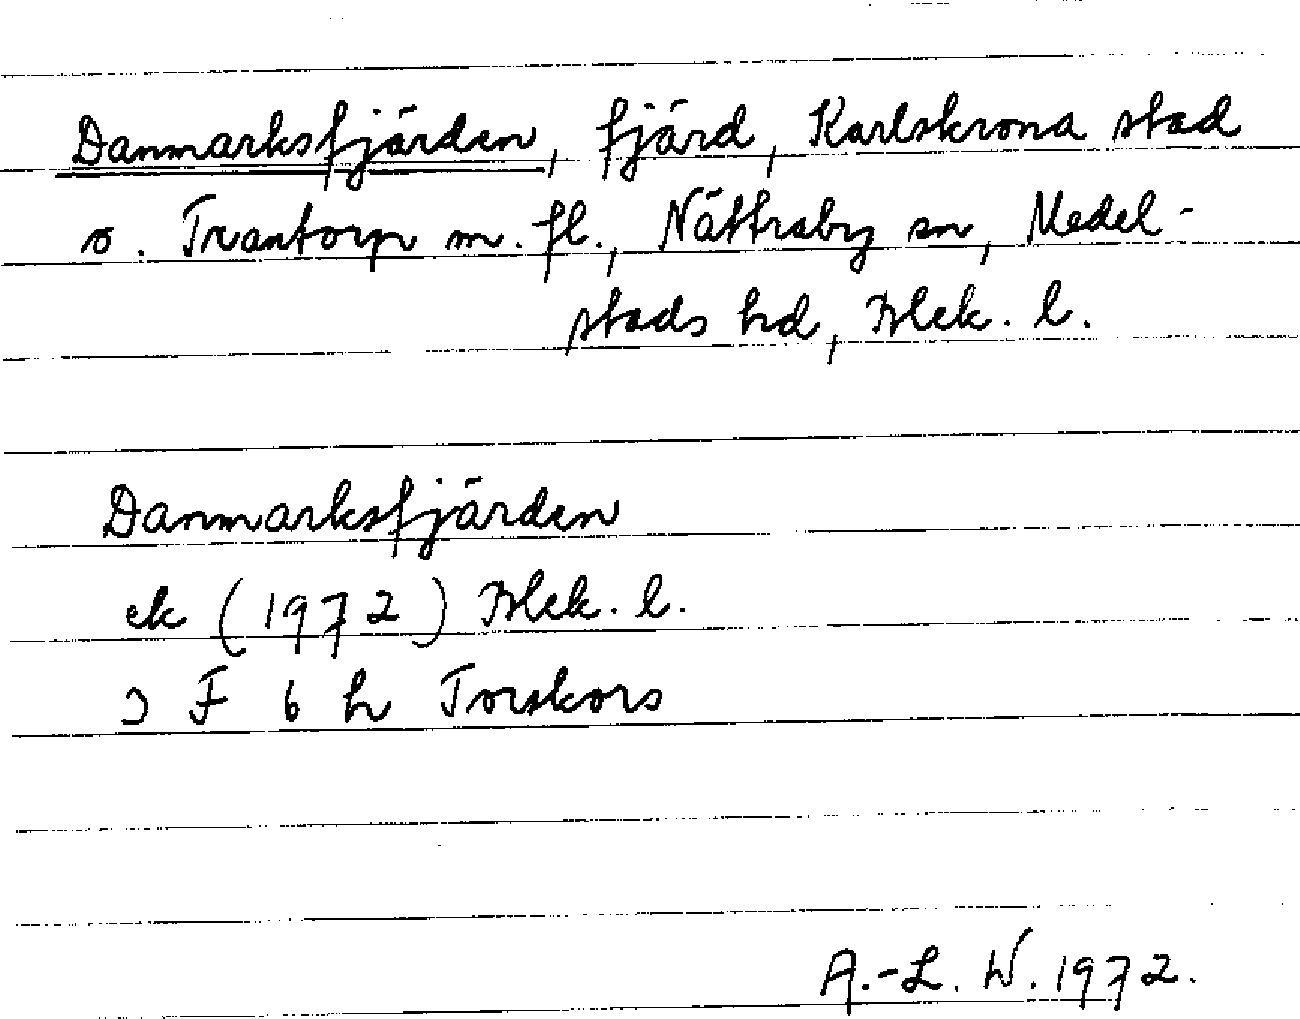 Danmarksfjärden, fjärd, Karlskrona stad
o. Trantorp m. fl., Nättraby sn, Medel-
stads hd, Blek. l.
Danmarksfjärden
ek (1972) Blek. l.
3 F 6 h Torskors
A.-L. W. 1972.